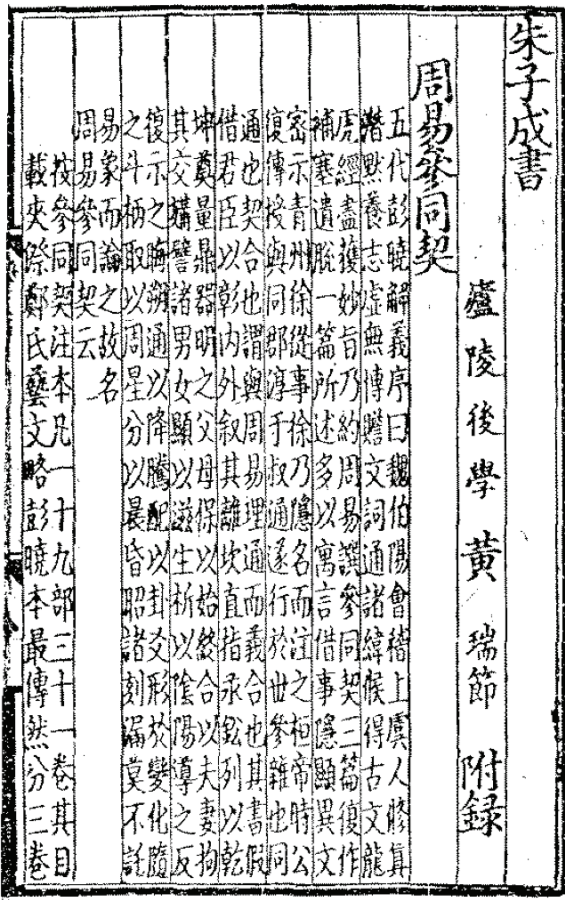 朱子成書
廬陵後學黃瑞節附錄
周易參同契
五代彭曉解義序曰魏伯陽會稽上虞人脩真
潛默養志虛無博贍文詞通諸緯候得古文龍
虎經盡獲妙旨乃約周易譔參同契三篇復作
補塞遺脫一篇所述多以寓言借事隱顯異文
密示青州徐從事徐乃隱名而注之桓帝時公
復傳授與同郡淳于叔通遂行於世參雜也同
通也契合也謂與周易理通而義合也其書假
借君臣以彰內外叙其離坎直指汞鈆列以乾
坤奠量鼎器明之父母保以始終合以夫妻拘
其交媾譬諸男女顯以滋生析以陰陽導之反
復示之晦朔通以降騰配以卦爻形於變化隨
之斗柄取以周星分以晨昏昭諸刻漏莫不託
易象而論之故名
周易參同契云
按參同契注本凡一十九部三十一卷其目
載夾漈鄭氏藝文略彭曉本最傳然分三卷